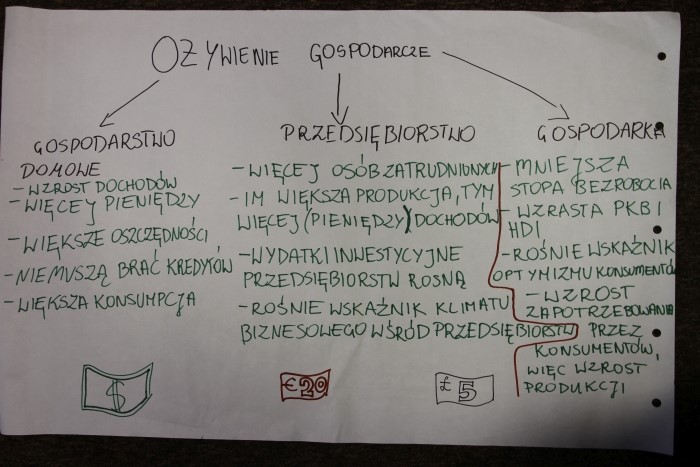 OŻYWIENIE GOSPODARCZE
GOSPODARSTWO
DOMOWE
- WZROST DOCHODÓW
- WIĘCEJ PIENIĘDZY
- WIĘKSZE OSZCZĘDNOŚCI
- NIE MUSZĄ BRAĆ KREDYTÓW
- WIĘKSZA KONSUMPCJA
PRZEDSIĘBIORSTWO
- WIĘCEJ OSÓB ZATRUDNIONYCH
- IM WIĘKSZA PRODUKCJA, TYM
WIĘCEJ (PIENIĘDZY) DOCHODÓW
- WYDATKI INWESTYCYJNE
PRZEDSIĘBIORSTW ROSNĄ
- ROŚNIE WSKAŹNIK KLIMATU
BIZNESOWEGO WŚRÓD PRZEDSIĘBIORSTW
GOSPODARKA
- MNIEJSZA
STOPA BEZROBOCIA
- WZRASTA PKB I
HDI
- ROŚNIE WSKAŹNIK
OPTYMIZMU KONSUMENTÓW
- WZROST
ZAPOTRZEBOWANIA
PRZEZ
KONSUMENTÓW,
WIĘC WZROST
PRODUKCJI
$
€ 20
£ 5